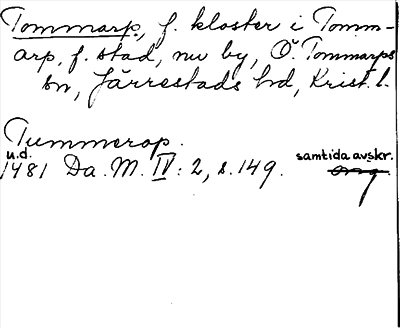 Tommarp, f. kloster i Tomm-
arp, f. stad, nu by, Ö. Tommarps
sn, Järrestads hd, Krist. l.
Tummerop.
u.d.
1481 Da. M. IV: 2, s. 149. samtida avskr.
orig